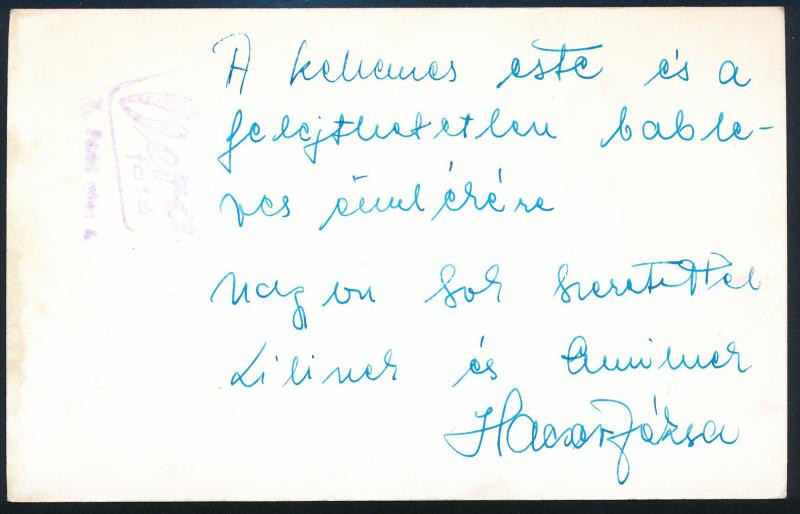 A kellemes este és a
felejthetetlen bable-
ves emlékére
nagyon sok szeretettel
Lilinek és
Józsa
foto